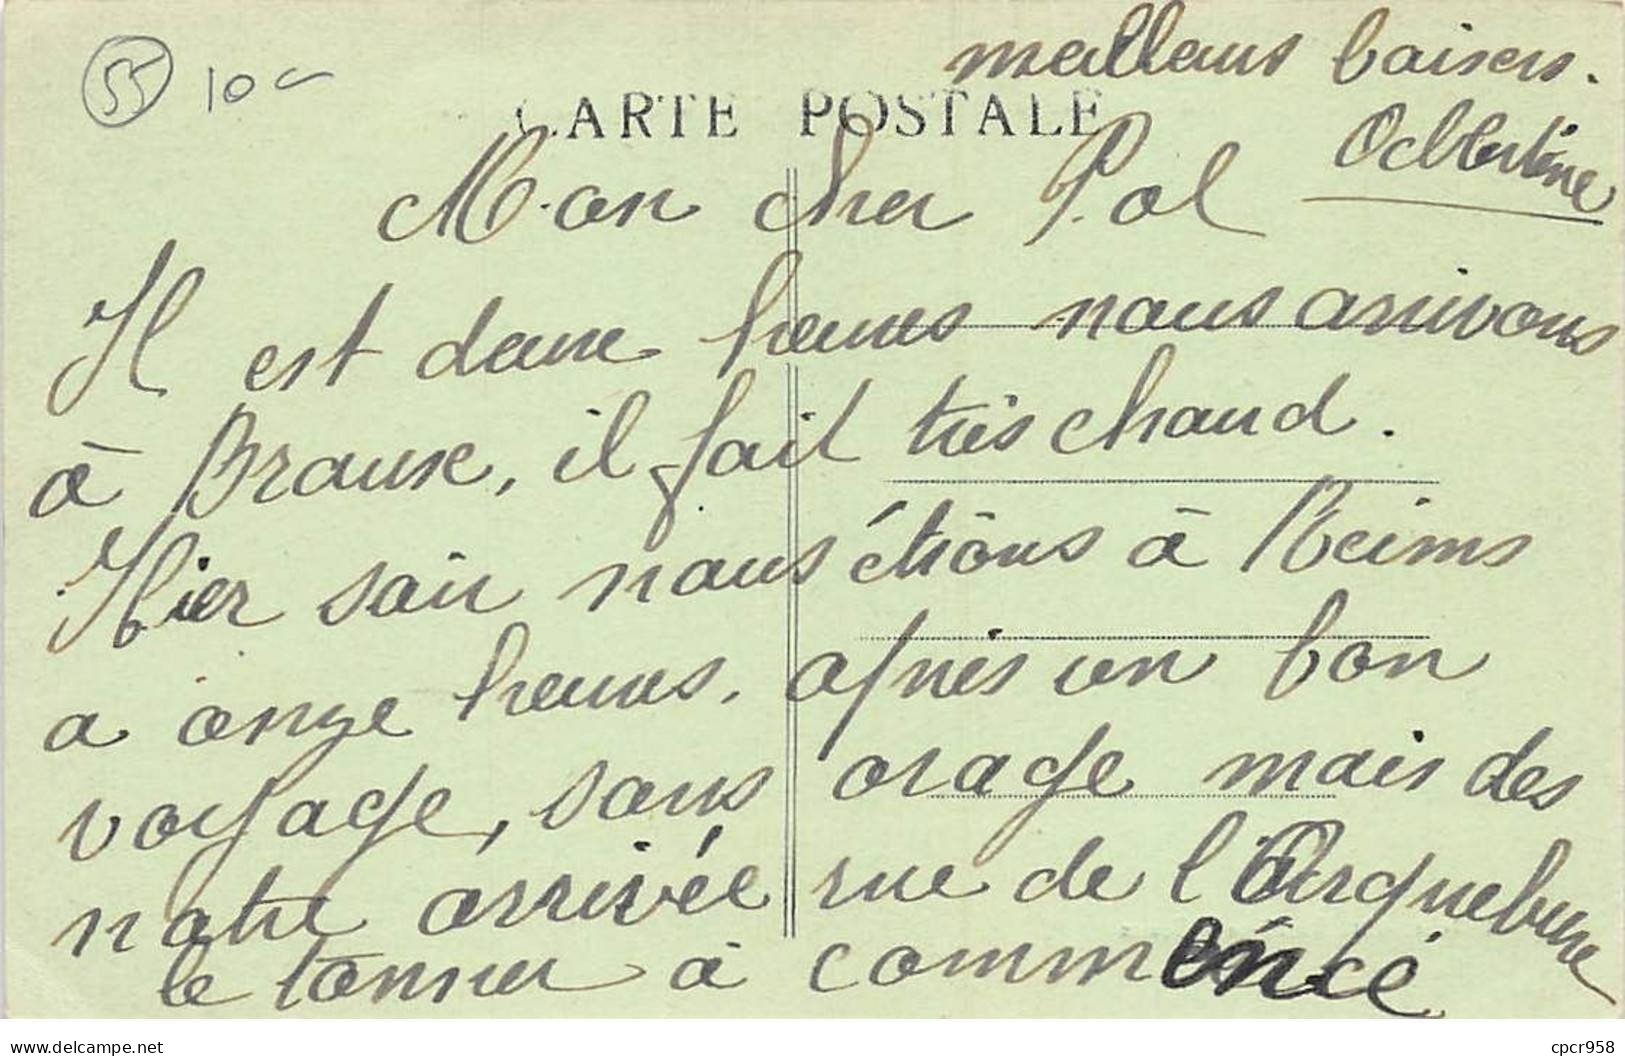 meilleurs baisers.
55 10
CARTE POSTALE
Mon cher Pol
Il est deux heures nous arrivons
à Braux, il fait très chaud.
Hier soir nous étions à Reims
a onze heures, après un bon
voyage, sans orage mais des
notre arrivée rue de l'Arquebuse
le tonner à commencé
delcampe.net
cpcr958